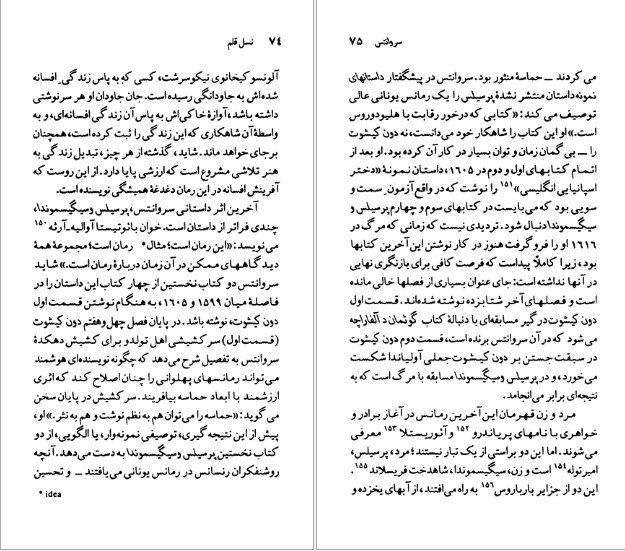 ۷۴ نسل قلم
آلونسو کیخانوی نیکوسرشت، کسی که به پاس زندگی افسانه
شده‌اش به جاودانگی رسیده است. جان جاودان او هر سرنوشتی
داشته باشد، آوازهٔ خاکی‌اش به پاس آن زندگی افسانه‌ای، و به
واسطهٔ آن شاهکاری که این زندگی را ثبت کرده است، همچنان
برجای خواهد ماند. شاید، گذشته از هر چیز، تبدیل زندگی به
هنر تلاشی مشروع است که ارزشی پایا دارد. از این روست که
آفرینش افسانه در این رمان دغدغهٔ همیشگی نویسنده است.
آخرین اثر داستانی سروانتس، پرسیلس و سیگیسموندا،
چندی فراتر از داستان است. خوان بائوتیستا آوالیه‌ـ آرثه ۱۵۰
می‌نویسد: «این رمان است؛ مثال* رمان است؛ مجموعهٔ همهٔ
دیدگاههای ممکن در آن زمان دربارهٔ رمان است.» شاید
سروانتس دو کتاب نخستین از چهار کتاب این داستان را در
فاصلهٔ میان ۱۵۹۹ و ۱۶۰۵، به هنگام نوشتن قسمت اول
دون کیشوت، نوشته باشد. در پایان فصل چهل‌وهفتم دون کیشوت
(قسمت اول) سرکشیشی اهل تولدو برای کشیش دهکدهٔ
سروانتس به تفصیل شرح می‌دهد که چگونه نویسنده‌ای هوشمند
می‌تواند رمانسهای پهلوانی را چنان اصلاح کند که اثری
ارزشمند با ابعاد حماسه بیافریند. سرکشیش در پایان سخن
می‌گوید: «حماسه را می‌توان هم به نظم نوشت و هم به نثر.» او،
پیش از این نتیجه گیری، توصیفی نمونه‌وار، یا الگویی، از دو
کتاب نخستین پرسیلس و سیگیسموندا به دست می‌دهد. آنچه
روشنفکران رنسانس در رمانس یونانی می‌یافتند ــ و تحسین
* idea
سروانتس ۷۵
می کردند ــ حماسهٔ منثور بود. سروانتس در پیشگفتار داستانهای
نمونه داستان منتشر نشدهٔ پرسیلس را یک رمانس یونانی عالی
توصیف می کند: «کتابی که درخور رقابت با هلیودوروس
است.» او این کتاب را شاهکار خود می‌دانست، نه دون کیشوت
را ــ بی گمان زمان و توان بسیار در کار آن کرده بود. او بعد از
اتمام کتابهای اول و دوم در ۱۶۰۵، داستان نمونهٔ «دختر
اسپانیایی انگلیسی» ۱۵۱ را نوشت که در واقع آزمون ِ سمت و
سویی بود که می‌بایست در کتابهای سوم و چهارم پرسیلس و
سیگیسموندا دنبال شود. تردیدی نیست که زمانی که مرگ در
۱۶۱۶ او را فرو گرفت هنوز در کار نوشتن این آخرین کتابها
بود، زیرا کاملاً پیداست که فرصت کافی برای بازنگری نهایی
در آنها نداشته است: جای عنوان بسیاری از فصلها خالی مانده
است و فصلهای آخر شتابزده نوشته شده‌اند. قسمت اول
دون کیشوت درگیر مسابقه‌ای با دنبالهٔ کتاب گوثمان دآلفاراچه
می‌شود که در آن سروانتس برنده است، قسمت دوم دون کیشوت
در سبقت جستن بر دون کیشوت جعلی آولیاندا شکست
می‌خورد، و در پرسیلس و سیگیسموندا مسابقه با مرگ است که به
نتیجه‌ای برابر می‌انجامد.
مرد و زن قهرمان این آخرین رمانس در آغاز برادر و
خواهری با نامهای پریاندرو ۱۵۲ و آئوریستلا ۱۵۳ معرفی
می‌شوند. اما این دو براستی از یک تبار نیستند؛ مرد، پرسیلس،
امیر توله ۱۵۴ است و زن، سیگیسموندا، شاهدخت فریسلاند ۱۵۵.
این دو از جزایر بارباروس ۱۵۶ به راه می‌افتند، از آبهای یخزده و